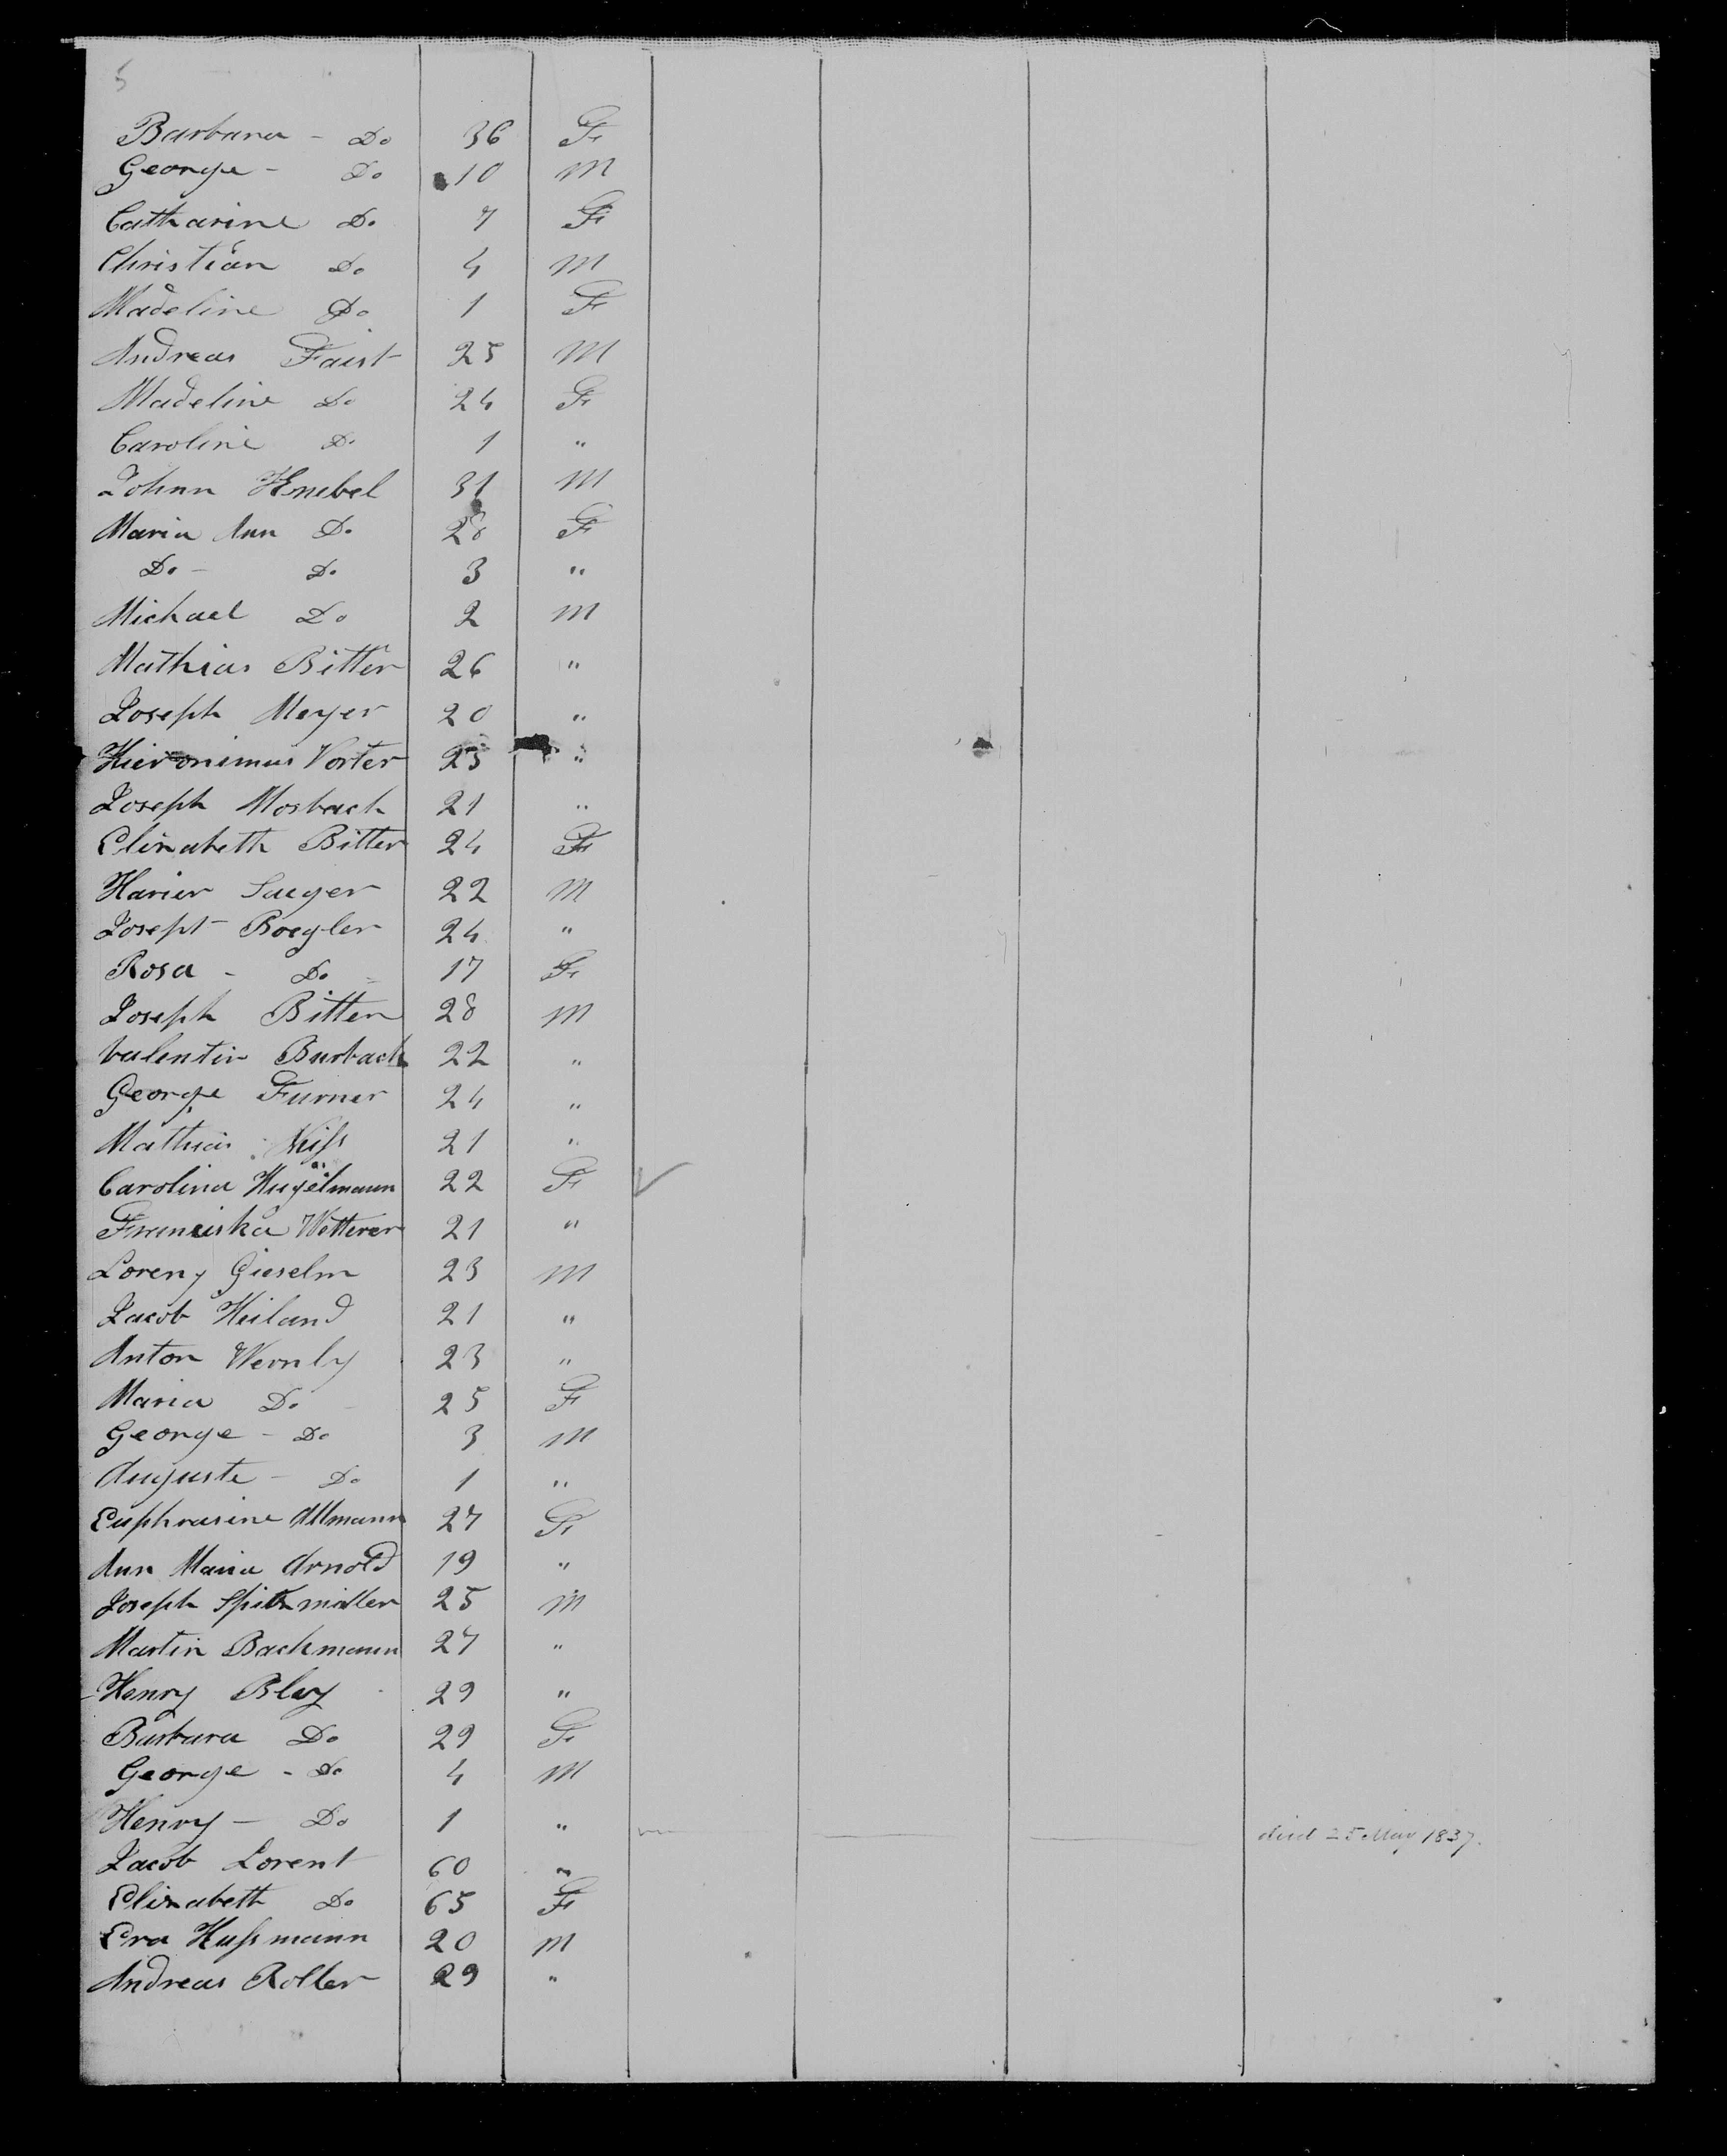 5
Barbara - Do 36 F
George - Do 10 M
Catharine Do 7 F
Christian Do 4 M
Madeline Do 1 F
Andreas Faist 25 M
Madeline Do 24 F
Caroline Do 1 "
Johnn Knebel 31 M
Maria Ann Do 28 F
Do - Do 3 "
Michael Do 2 M
Mathias Bitter 26 "
Joseph Meyer 20 "
Hieronimus Vorter 25 "
Joseph Mosbach 21 "
Elizabeth Bitter 24 F
Xavier Saeger 22 M
Joseph Boegler 24 "
Rosa - Do - 17 F
Joseph Bitter 28 M
Valentin Burbach 22 "
George Furner 24 "
Mathias 21 "
Carolina Hugelmann 22 F
Franciska Wetterer 21 "
Lorenz Gieselm 23 M
Jacob Heiland 21 "
Anton Wernly 23 "
Maria Do 25 F
George - Do 3 M
Auguste - Do 1 "
Euphrasine Allmann 27 F
Ann Maria Arnold 19 "
Joseph Spitzmiller 25 M
Martin Bachmann 27 "
Henry Bley 29 "
Barbara Do 29 F
George - Do 4 M
Henry - Do 1 " died 25 May 1837.
Jacob Lorent 60 "
Elizabeth Do 65 F
Eva Hussmann 20 M
Andreas Roller 29 "